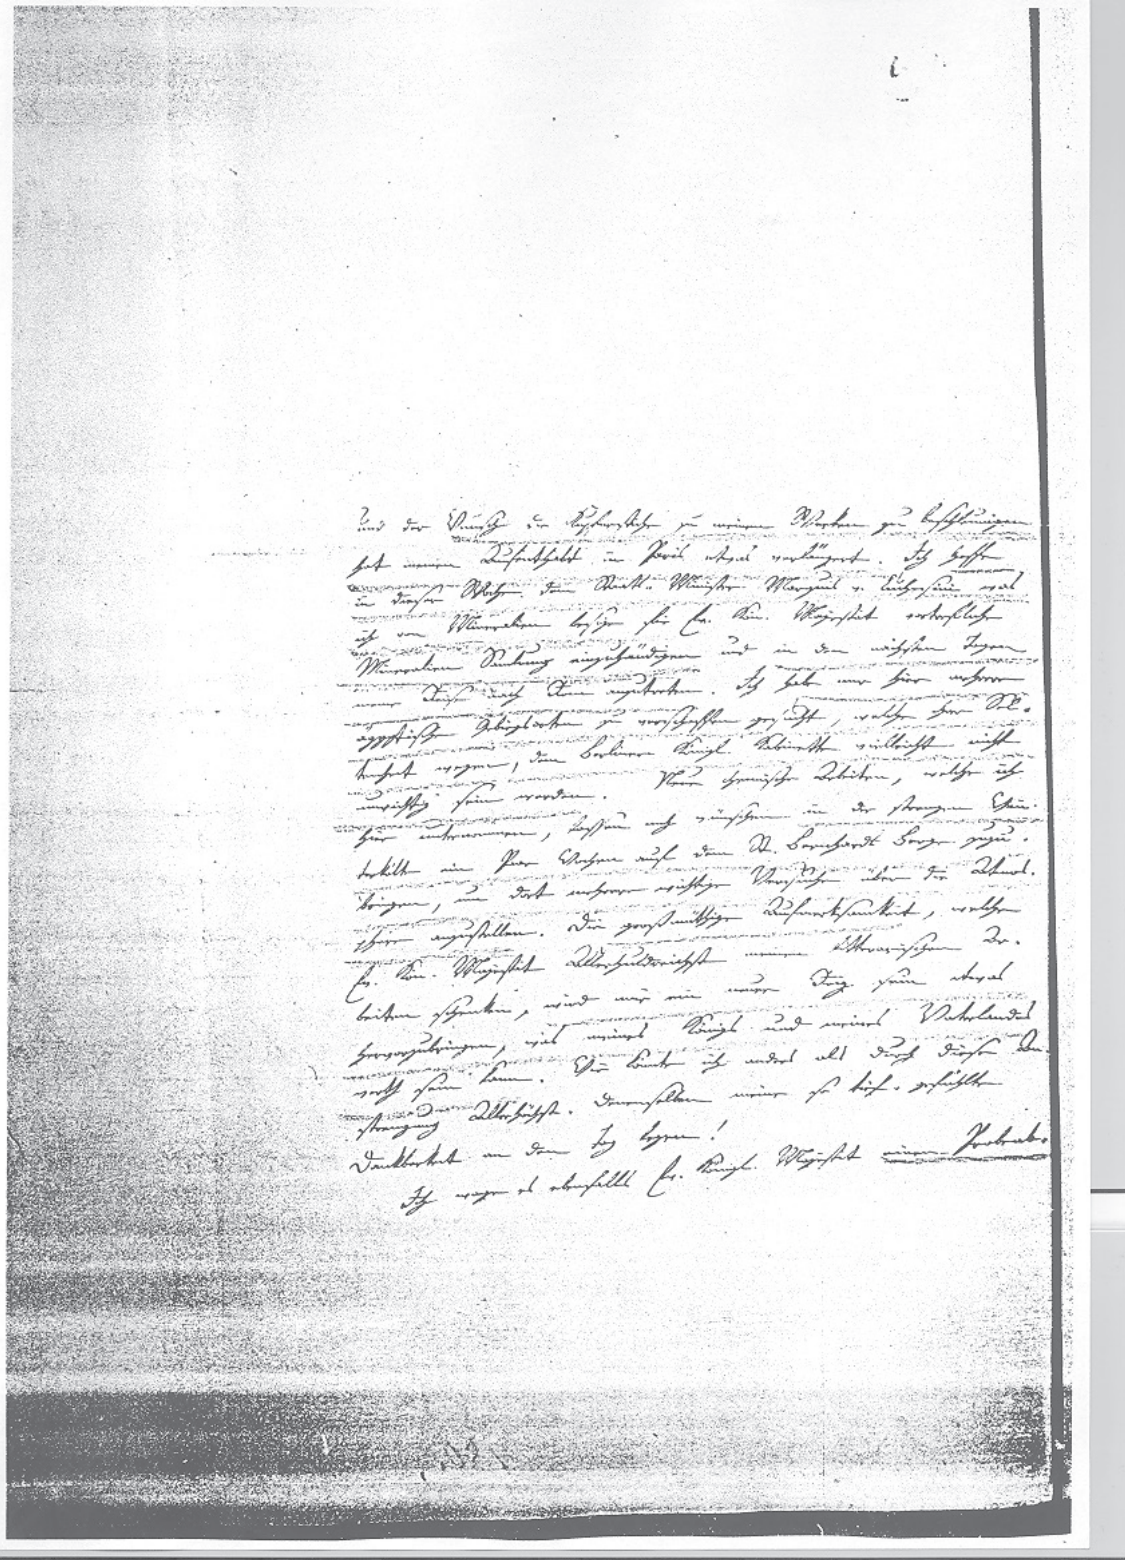 und der Wunsch die Kupferstiche zu meinen Werken zu beschleunigen
hat meinen Aufenthalt in Paris etwas verlängert. Ich hoffe
in dieser Woche dem Staats-Minister Marquis v. Luchesini was
ich an Mineralien besize für Ew. Kön. Majestät vortrefliche
Mineralien Samlung einzuhändigen und in den nächsten Tagen
meine Reise nach Rom anzutreten. Ich habe mir hier mehrere
ägyptische Gebirgsarten zu verschaffen gesucht, welche ihrer Sel-
tenheit wegen, dem Berliner Königl. Kabinette vielleicht nicht
unwichtig sein werden. Neue chemische Arbeiten, welche ich
hier unternommen, lassen mich wünschen in der strengen Win-
terkälte ein Paar Wochen auf dem St. Bernhards Berge zuzu-
bringen, um dort mehrere wichtige Versuche über die Atmos-
phäre anzustellen. Die großmüthige Aufmerksamkeit, welche
Ew. Kön. Majestät Allerhuldreichst meinen litterarischen Ar-
beiten schenken, wird mir ein neuer Trieb sein etwas
hervorzubringen, was meines Königs und meines Vaterlandes
werth sein kann. Wie könnte ich anders als durch diese An-
strengung Allerhöchst-Denenselben meine so tief-gefühlte
Dankbarkeit an den Tag legen!
Ich wage es ebenfalls Ew. Königl. Majestät einen Probeab-